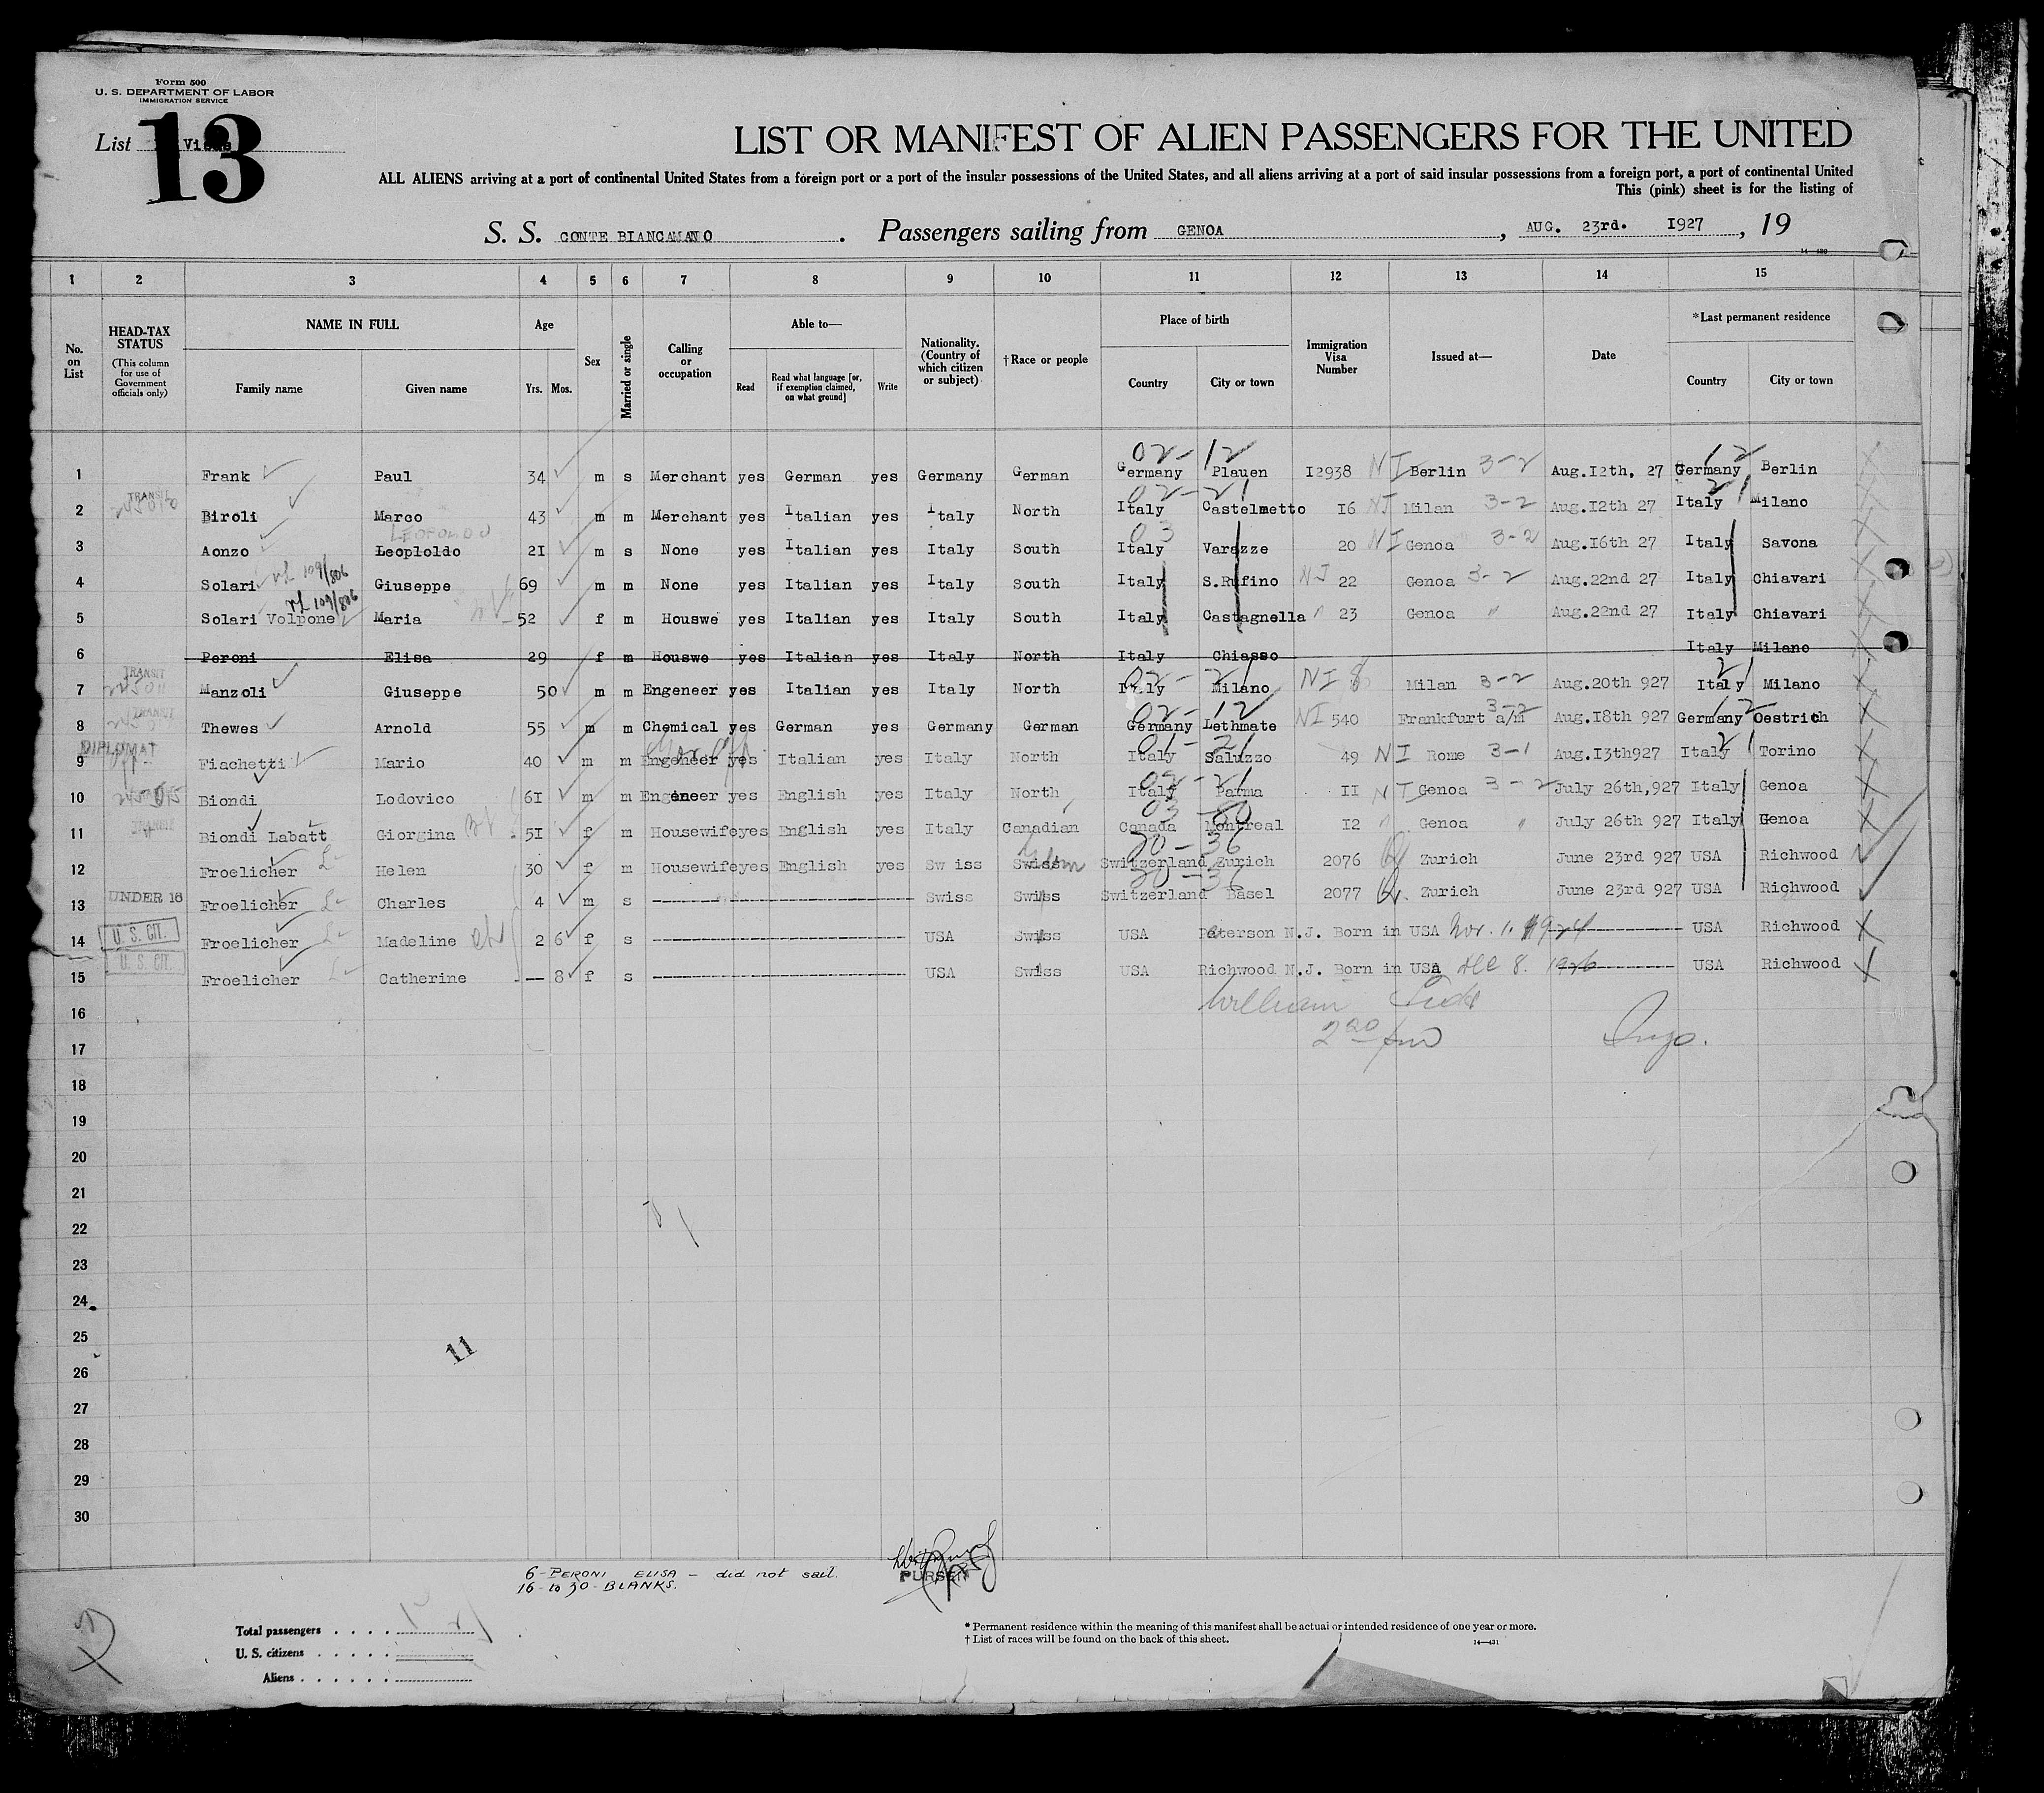 Form 500
U. S. DEPARTMENT OF LABOR
IMMIGRATION SERVICE
List 13
LIST OR MANIFEST OF ALIEN PASSENGERS FOR THE UNITED
ALL ALIENS arriving at a port of continental United States from a foreign port or a port of the insular possessions of the United States, and all aliens arriving at a port of said insular possessions from a foreign port, a port of continental United
This (pink) sheet is for the listing of
S. S. CONTE BIANCAMANO . Passengers sailing from GENOA , AUG. 23rd. 1927 , 19
14—430
1 2 3 4 5 6 7 8 9 10 11 12 13 14 15
No. on List HEAD-TAX STATUS (This column for use of Government officials only) NAME IN FULL Family name Given name Age Yrs. Mos. Sex Married or single Calling or occupation Able to— Read Read what language [or, if exemption claimed, on what ground] Write Nationality. (Country of which citizen or subject) † Race or people Place of birth Country City or town Immigration Visa Number Issued at— Date *Last permanent residence Country City or town
02-12 12
1 Frank Paul 34 m s Merchant yes German yes Germany German Germany Plauen I2938 NI Berlin 3-2 Aug.I2th, 27 Germany Berlin
TRANSIT 02-21 21
2 Biroli Marco 43 m m Merchant yes Italian yes Italy North Italy Castelmetto I6 NI Milan 3-2 Aug.I2th 27 Italy Milano
LEOPOLDO 03
3 Aonzo Leoploldo 2I m s None yes Italian yes Italy South Italy Varazze 20 NI Genoa 3-2 Aug.I6th 27 Italy Savona
4 Solari 109/806 Giuseppe 69 m m None yes Italian yes Italy South Italy S.Rufino NI 22 Genoa 3-2 Aug.22nd 27 Italy Chiavari
109/806
5 Solari Volpone Maria 52 f m Houswe yes Italian yes Italy South Italy Castagnella " 23 Genoa " Aug.22nd 27 Italy Chiavari
6 Peroni Elisa 29 f m Houswe yes Italian yes Italy North Italy Chiasso Italy Milano
TRANSIT 02-21 21
7 Manzoli Giuseppe 50 m m Engeneer yes Italian yes Italy North Italy Milano NI 8 Milan 3-2 Aug.20th 927 Italy Milano
TRANSIT 02-12 12
8 Thewes Arnold 55 m m Chemical yes German yes Germany German Germany Lethmate NI 540 Frankfurt a/m 3-2 Aug.I8th 927 Germany Oestrich
DIPLOMAT 01-21 21
9 Fiachetti Mario 40 m m Engeneer yes Italian yes Italy North Italy Saluzzo 49 NI Rome 3-1 Aug.I3th927 Italy Torino
02-21
10 Biondi Lodovico 6I m m Engeneer yes English yes Italy North Italy Parma II NI Genoa 3-2 July 26th,927 Italy Genoa
TRANSIT 03 80
11 Biondi Labatt Giorgina 5I f m Housewife yes English yes Italy Canadian Canada Montreal I2 " Genoa " July 26th 927 Italy Genoa
20-36
12 Froelicher Helen 30 f m Housewife yes English yes Sw iss Swiss Switzerland Zurich 2076 Zurich June 23rd 927 USA Richwood
20-36
13 UNDER 16 Froelicher Charles 4 m s Swiss Swiss Switzerland Basel 2077 Zurich June 23rd 927 USA Richwood
14 U. S. CIT. Froelicher Madeline 2 6 f s USA Swiss USA Paterson N.J. Born in USA Nov. 1. 1924 USA Richwood
15 U. S. CIT. Froelicher Catherine — 8 f s USA Swiss USA Richwood N.J. Born in USA Dec 8. 1926 USA Richwood
16 William
17
18
19
20
21
22
23
24
25
11
26
27
28
29
30
6 - PERONI ELISA — did not sail.
16 to 30 - BLANKS.
PURSER
Total passengers
U. S. citizens
Aliens
* Permanent residence within the meaning of this manifest shall be actual or intended residence of one year or more.
† List of races will be found on the back of this sheet.
14—431